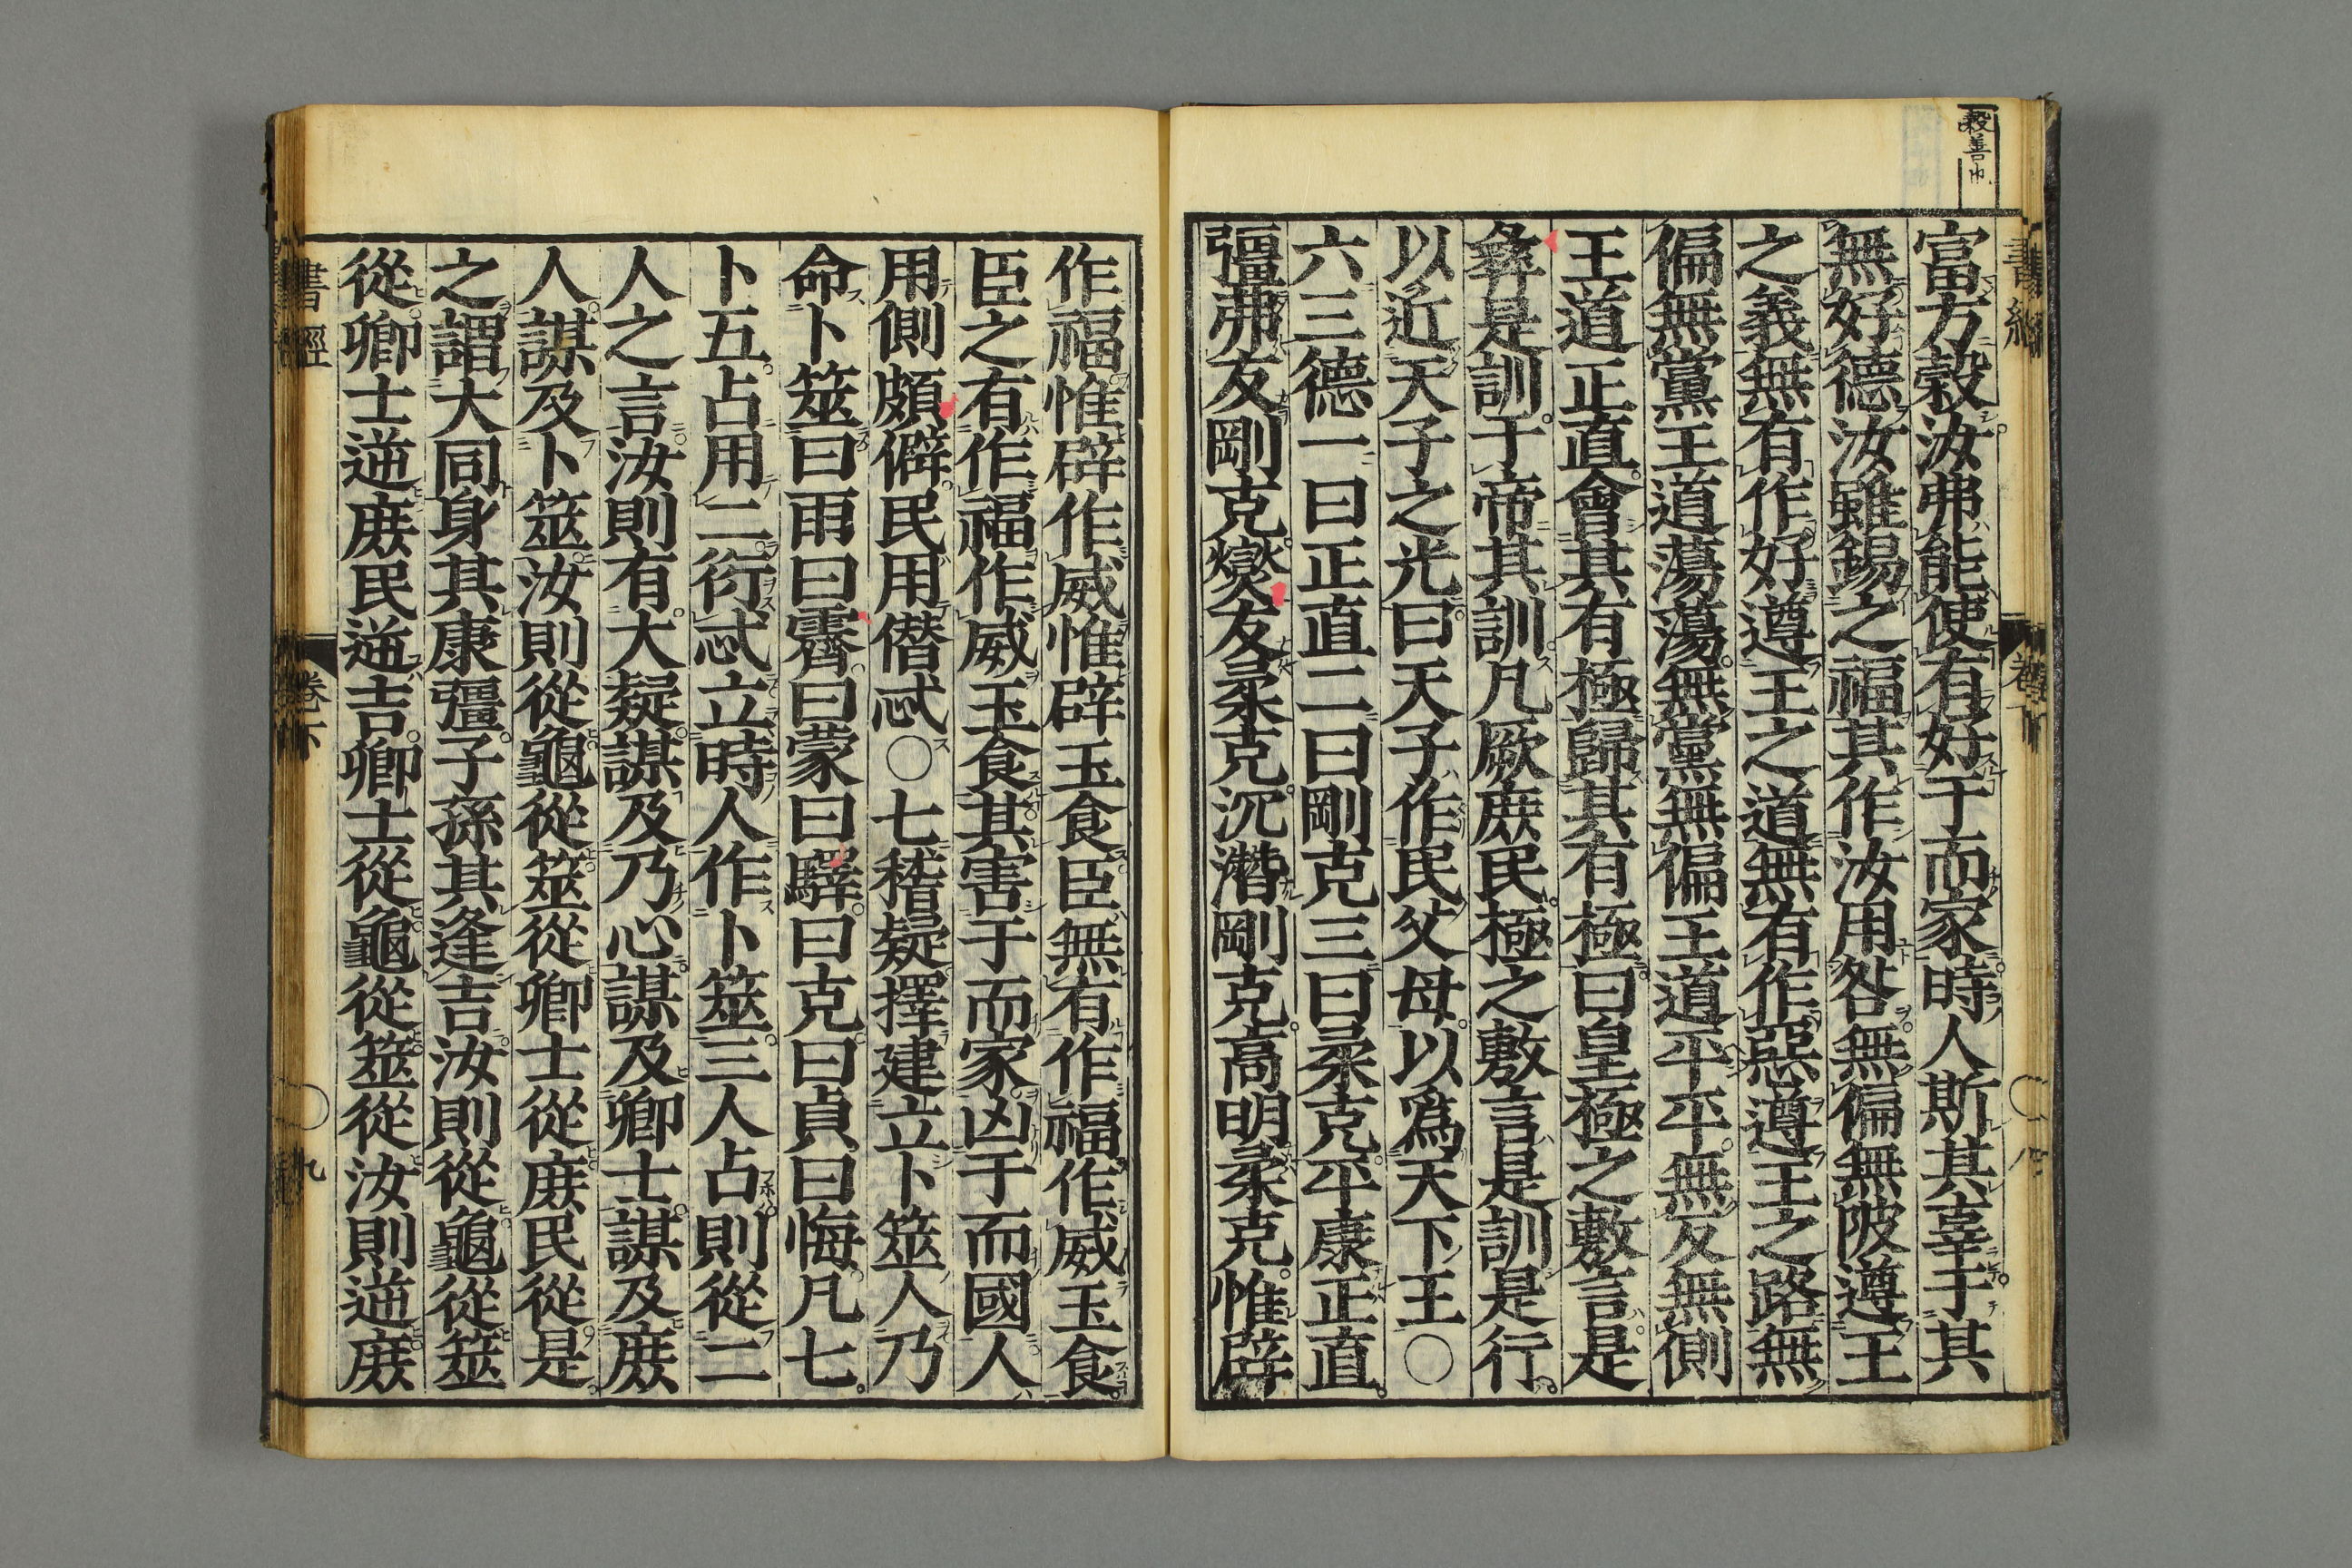 穀善也
富方穀汝弗能使有好于而家時人斯其辜于其
無好德汝雖錫之福其作汝用咎無偏無陂遵王
之義無有作好遵王之道無有作惡遵王之路無
偏無黨王道蕩蕩無黨無偏王道平平無反無側
王道正直會其有極歸其有極曰皇極之敷言是
彝是訓于帝其訓凡厥庶民極之敷言是訓是行
以近天子之光曰天子作民父母以爲天下王○
六三德一曰正直二曰剛克三曰柔克平康正直
彊弗友剛克燮友柔克沉潛剛克高明柔克惟辟
書經
卷下
八
作福惟辟作威惟辟玉食臣無有作福作威玉食
臣之有作福作威玉食其害于而家凶于而國人
用側頗僻民用僭忒○七稽疑擇建立卜筮人乃
命卜筮曰雨曰霽曰蒙曰驛曰克曰貞曰悔凡七
卜五占用二衍忒立時人作卜筮三人占則從二
人之言汝則有大疑謀及乃心謀及卿士謀及庶
人謀及卜筮汝則從龜從筮從卿士從庶民從是
之謂大同身其康彊子孫其逢吉汝則從龜從筮
從卿士逆庶民逆吉卿士從龜從筮從汝則逆庶
書經
卷下
九